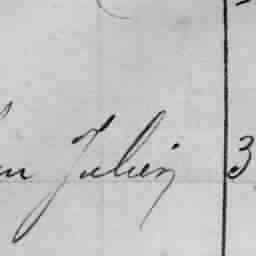 Julien 3